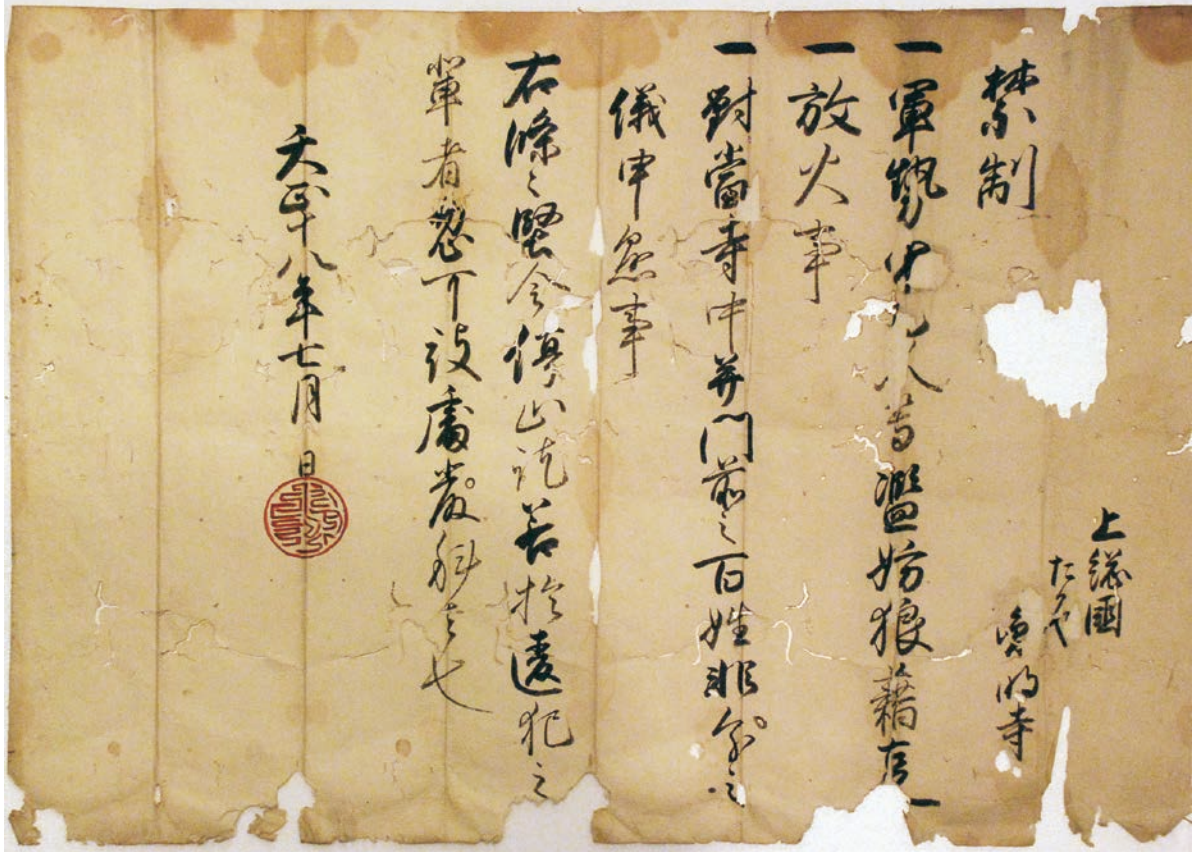 禁制
上総國
たかや
明寺
一軍勢甲乙人等濫妨狼藉事
一放火事
一對當寺中并門前之百姓非分之
儀申懸事
右條々堅令停止訖若於違犯之
輩者忽可被處嚴科者也
天正十八年七月 日